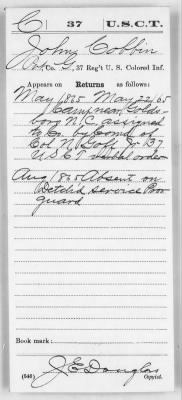 C | 37 | U.S.C.T.
John Cobbin
Pvt, Co. G, 37 Reg't U. S. Colored Inf.
Appears on Returns as follows:
May 1865 May 22/65
Camp near Golds-
boro N.C. assigned
to Co. by comd of
Col. N. Goff Jr 37
U.S.C.T. verbal order
Aug 1865 Absent on
Detch'd service Pro
guard
Book mark:
(546) J. E. Douglas
Copyist.